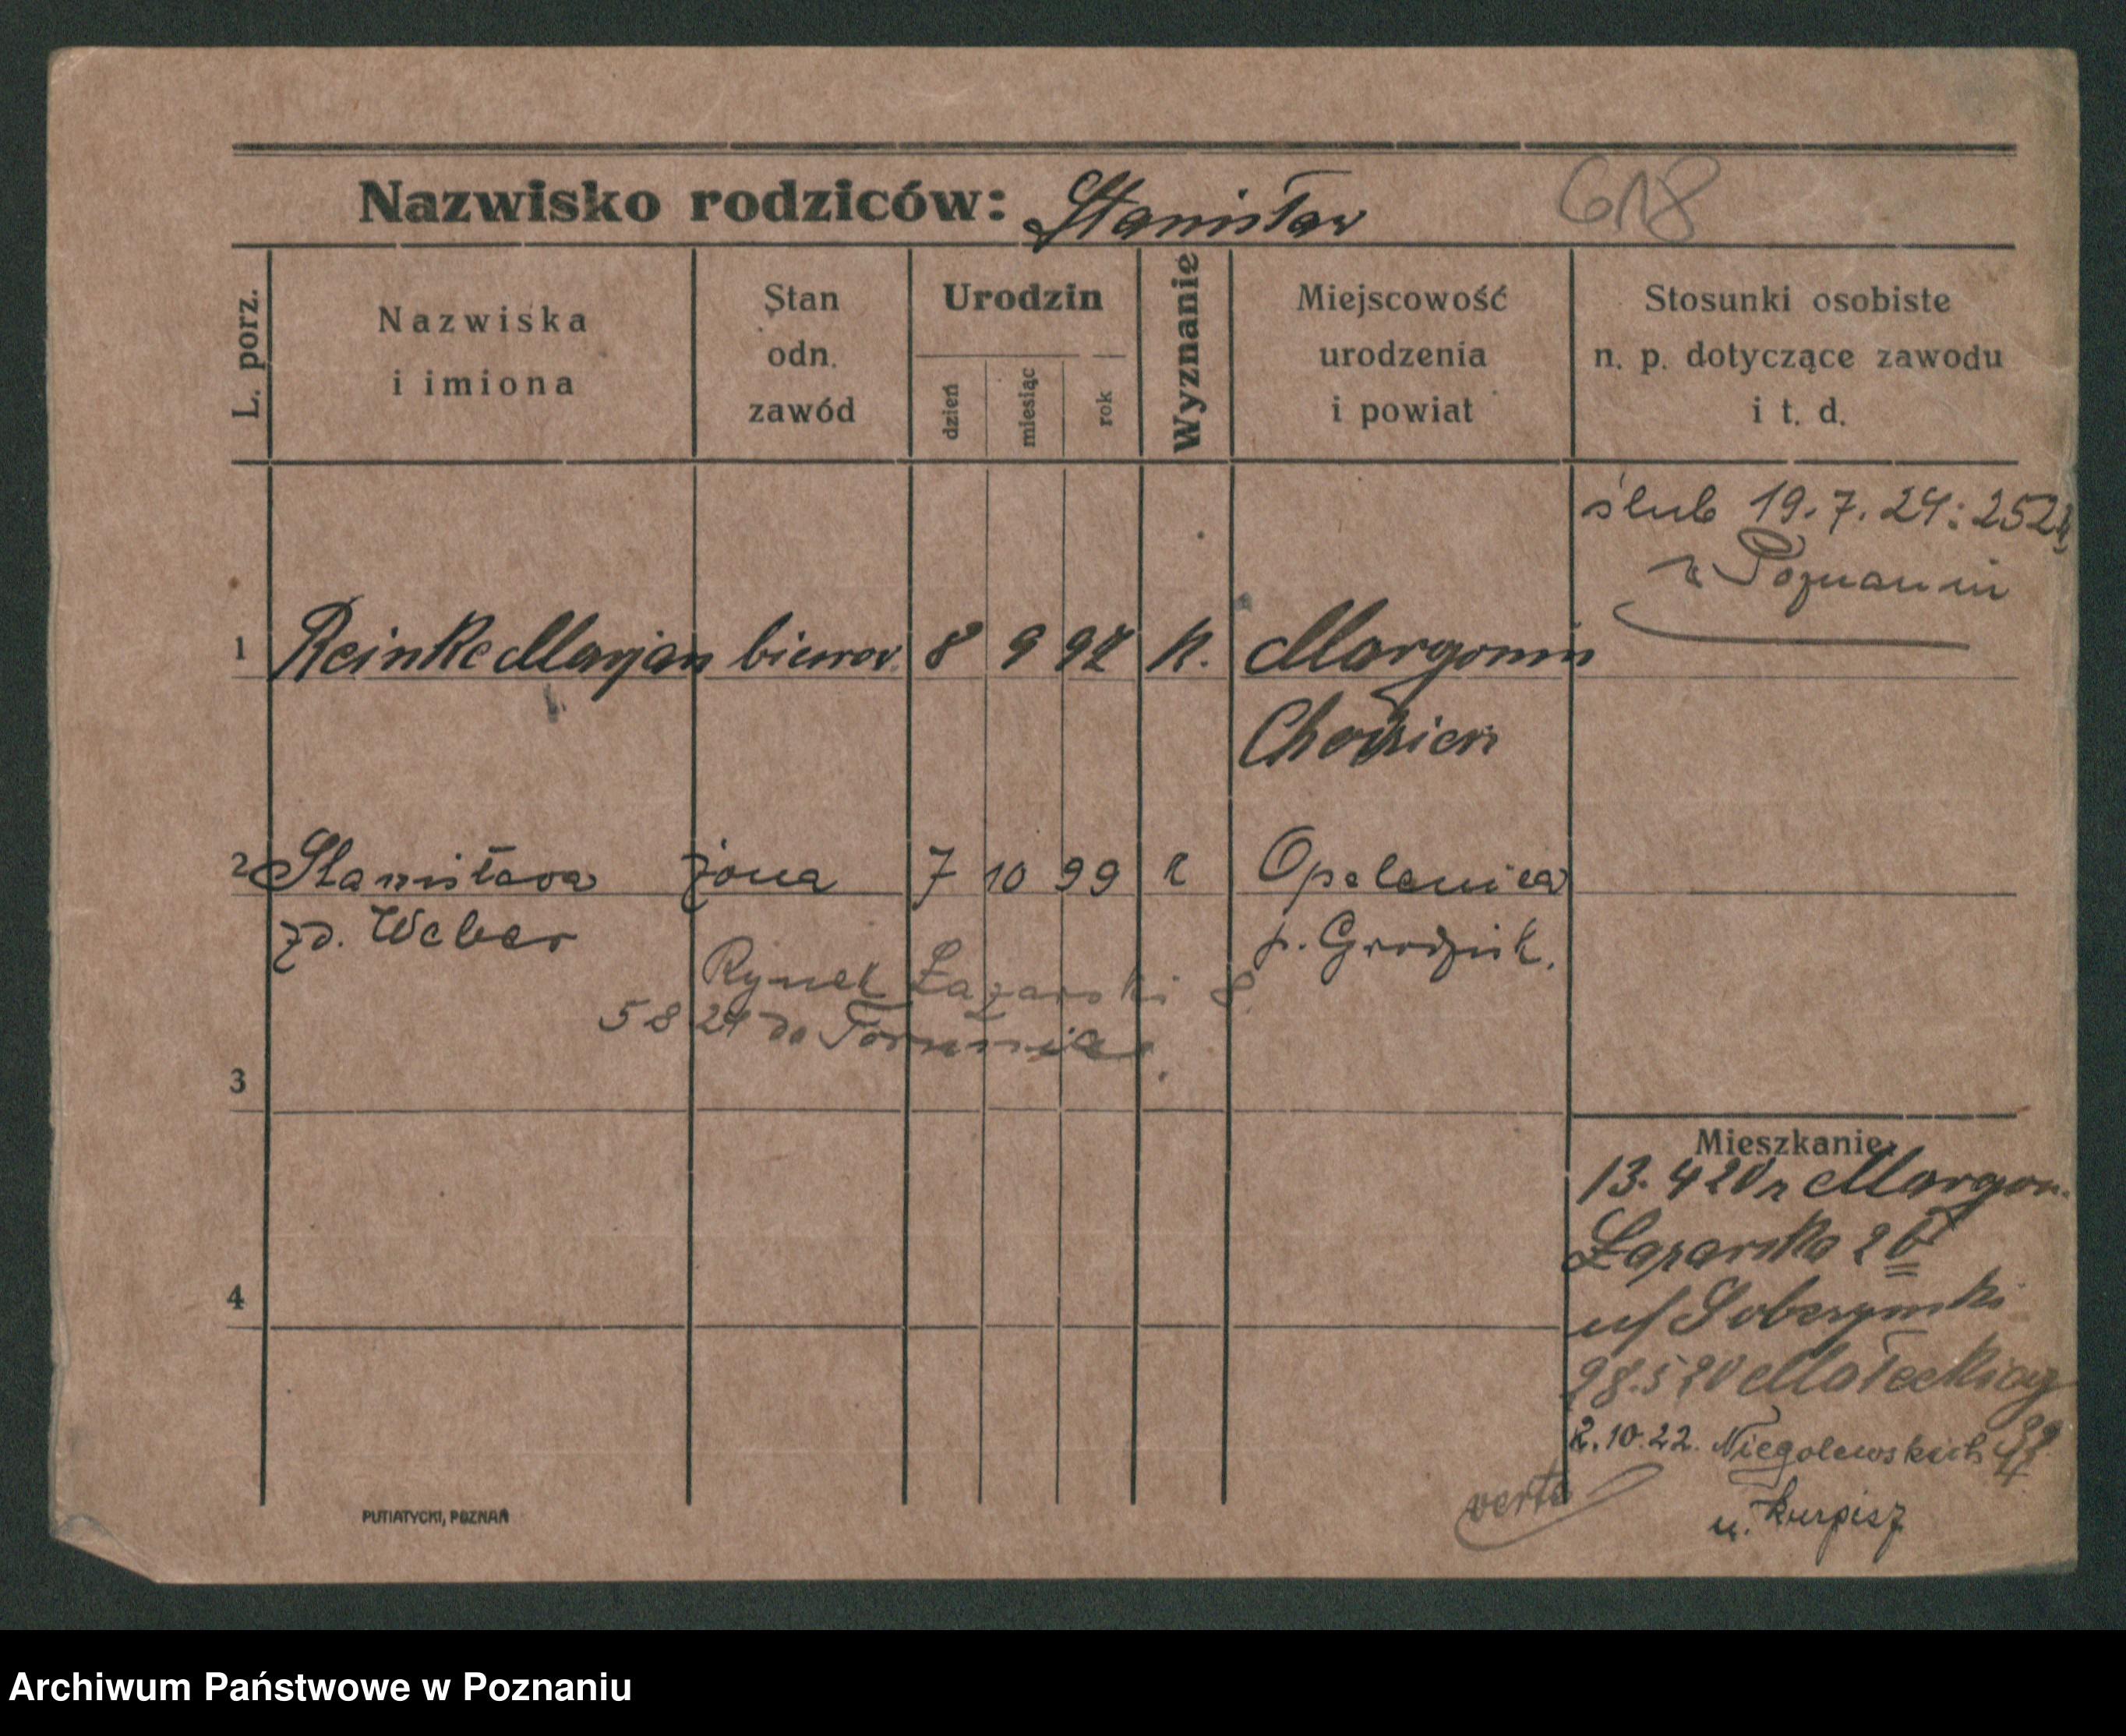 Nazwisko rodziców: Stanisław 618
L. porz.
Nazwiska
i imiona
Stan
odn.
zawód
Urodzin
dzień
miesiąc
rok
Wyznanie
Miejscowość
urodzenia
i powiat
Stosunki osobiste
n. p. dotyczące zawodu
i t. d.
ślub 19.7.24:
w Poznaniu
1 Reinke Marjan biurow. 8 9 92 k. Margonin
Chodzież
2 Stanisława żona 7 10 99 k Opalenica
zd. Weber p. Grodzisk.
Rynek Łazarski 8
5 8 24 do Torunia
3
Mieszkanie
13.4 20 z Margon.
Łazarska 2
u/ Sobczyński
28.5 20 Małeckiego
2.10.22. Niegolewskich
u. Kurpisz
4
verte
PUTIATYCKI, POZNAŃ
Archiwum Państwowe w Poznaniu